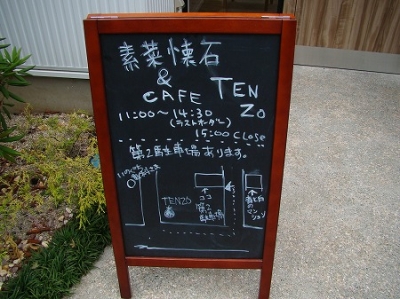 素菜懐石
&
CAFE TENZO
11:00〜14:30
(ラストオーダー)
15:00 Close
第2駐車場あります。
TENZO
↑
ココ
第2
駐車場